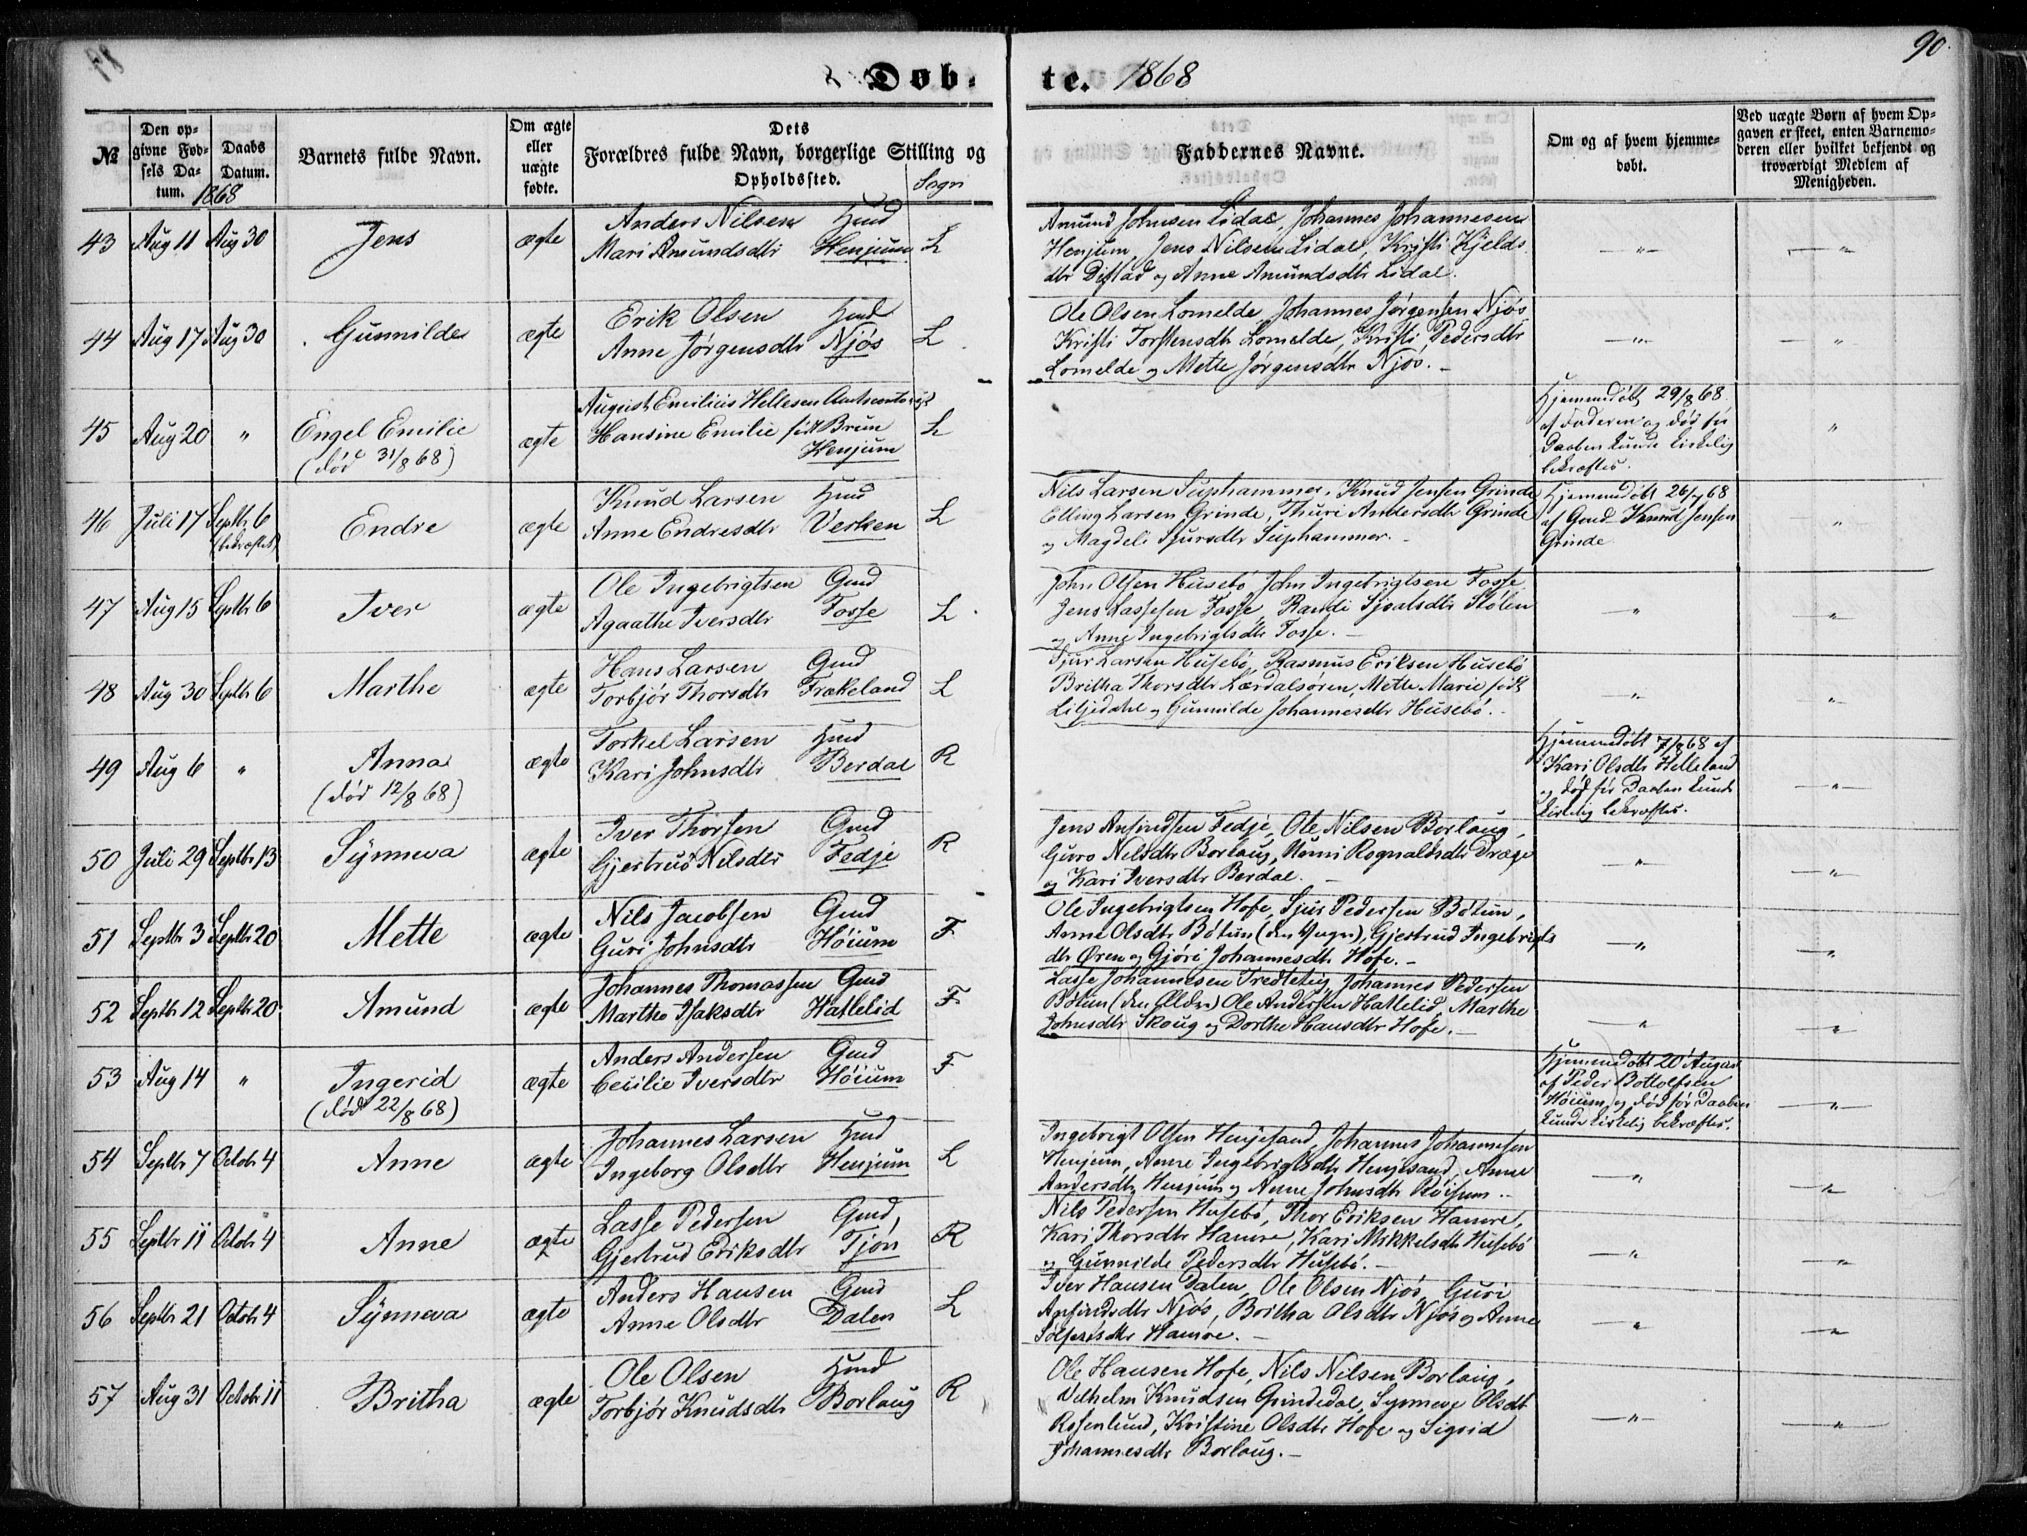 90.
Døb- te. 1868
№
Den op-
givne Fød-
sels Da-
tum.
1868
Daabs
Datum.
Barnets fulde Navn.
Om ægte
eller
uægte
fødte.
Dets
Forældres fulde Navn, borgerlige Stilling og
Opholdssted.
Sogn
Faddernes Navne.
Om og af hvem hjemme-
døbt.
Ved uægte Børn af hvem Op-
gaven er skeet, enten Barnemo-
deren eller hvilket bekjendt og
troværdigt Medlem af
Menigheden.
43 Aug 11 Aug 30 Jens ægte
Anders Nilsen Hmd
Mari Amundsdtr Henjum L
Amund Johnsen Lidal, Johannes Johannesen
Henjum, Jens Nilsen Lidal, Kristi Kjelds
dtr Distad og Anne Amundsdtr Lidal.
44 Aug 17 Aug 30 Gunnilde ægte
Erik Olsen Hmd
Anne Jørgensdtr Njøs L
Ole Olsen Lomelde Johannes Jørgensen Njøs
Kristi Torstensdtr Lomelde, Kristi Pedersdtr
Lomelde og Mette Jørgensdtr Njøs. -
45 Aug 20 " Engel Emilie
(død 31/8 68) ægte
August Emilius Hellesen
Hansine Emilie født Brun
Henjum L
Hjemmedøbt 29/8 68
af Faderen og død før
Daaben kunde kirkelig
bekræftes.
"
46 Juli 17 Septbr 6
(bekræftet) Endre ægte
Knud Larsen Hmd
Anne Endresdtr Verken L
Nils Larsen Suphammer, Knud Jensen Grinde
Elling Larsen Grinde, Thuri Andersdtr Grinde
og Magdeli Sjursdtr Suphammer. -
Hjemmedøbt 26/7 68
af Gmd Knud Jensen
Grinde
"
47 Aug 15 Septbr 6 Iver ægte
Ole Ingebrigtsen Gmd
Agaathe Iversdtr Fosse L
John Olsen Husebø, John Ingebrigtsen Fosse
Jens Lassesen Fosse, Randi Sjøulsdtr Stølen
og Anne Ingebrigtsdtr Fosse. -
48 Aug 30 Septbr 6 Marthe ægte
Hans Larsen Gmd
Torbjør Thorsdtr Frækeland L
Sjur Larsen Husebø, Rasmus Eriksen Husebø
Britha Thorsdtr Lærdalsøren, Mette Marie født
Liljedahl og Gunnilde Johannesdtr Husebø. -
49 Aug 6 " Anna
(død 12/8 68) ægte
Torkel Larsen Hmd
Kari Johnsdtr Berdal R
Hjemmedøbt 7/8 68 af
Kari Olsdtr Helleland
og død før Daaben kunde
kirkelig bekræftes.
"
50 Juli 29 Septbr 13 Synneva ægte
Iver Thorsen Gmd
Gjertrud Nilsdtr Fedje R
Jens Anfindsen Fedje, Ole Nilsen Borlaug,
Guro Nilsdtr Borlaug, Unni Rognaldsdtr Dræge
og Kari Iversdtr Berdal. -
51 Septbr 3 Septbr 20 Mette ægte
Nils Jacobsen Gmd
Guri Johnsdtr Høium F
Ole Ingebrigtsen Hofe, Sjur Pedersen Bøtun,
Anne Olsdtr Bøtun (den Yngre), Gjertrud Ingebrigts
dtr Øren og Gjøri Johannesdtr Hofe. -
52 Septbr 12 Septbr 20 Amund ægte
Johannes Thomassen Gmd
Marthe Isaksdtr Hatlelid F
Lasse Johannesen Tredteteig Johannes Pedersen
Bøtun (den Ældre) Ole Andersen Hatlelid, Marthe
Johnsdtr Skoug og Dorthe Hansdtr Hofe. -
53 Aug 14 " Ingerid
(død 22/8 68) ægte
Anders Andersen Gmd
Cecilie Iversdtr Høium F
Hjemmedøbt 20 August
af Peder Bottolfsen
Høium og død før Daaben
kunde kirkelig bekræftes.
"
54 Septbr 7 Octobr 4 Anne ægte
Johannes Larsen Hmd
Ingeborg Olsdtr Henjum L
Ingebrigt Olsen Henjesand, Johannes Johannesen
Henjum, Anne Ingebrigtsdtr Henjesand, Anne
Andersdtr Henjum og Anne Johnsdtr Røisum. -
55 Septbr 11 Octobr 4 Anne ægte
Lasse Pedersen Gmd,
Gjertrud Eriksdtr Tjøn R
Nils Pedersen Husebø, Thor Eriksen Hamre,
Kari Thorsdtr Hamre, Kari Mikkelsdtr Husebø
og Gunnilde Pedersdtr Husebø. -
56 Septbr 21 Octobr 4 Synneva ægte
Anders Hansen Gmd
Anne Olsdtr Dalen L
Iver Hansen Dalen, Ole Olsen Njøs, Guri
Anfindsdtr Njøs, Britha Olsdtr Njøs og Anne
Hamre. -
57 Aug 31 Octobr 11 Britha ægte
Ole Olsen Hmd
Torbjør Knudsdtr Borlaug R
Ole Hansen Hofe, Nils Nilsen Borlaug,
Vilhelm Knudsen Grindedal, Synneve Olsdt
Rosenlund, Kristine Olsdtr Hofe og Sigrid
Johannesdtr Borlaug. -